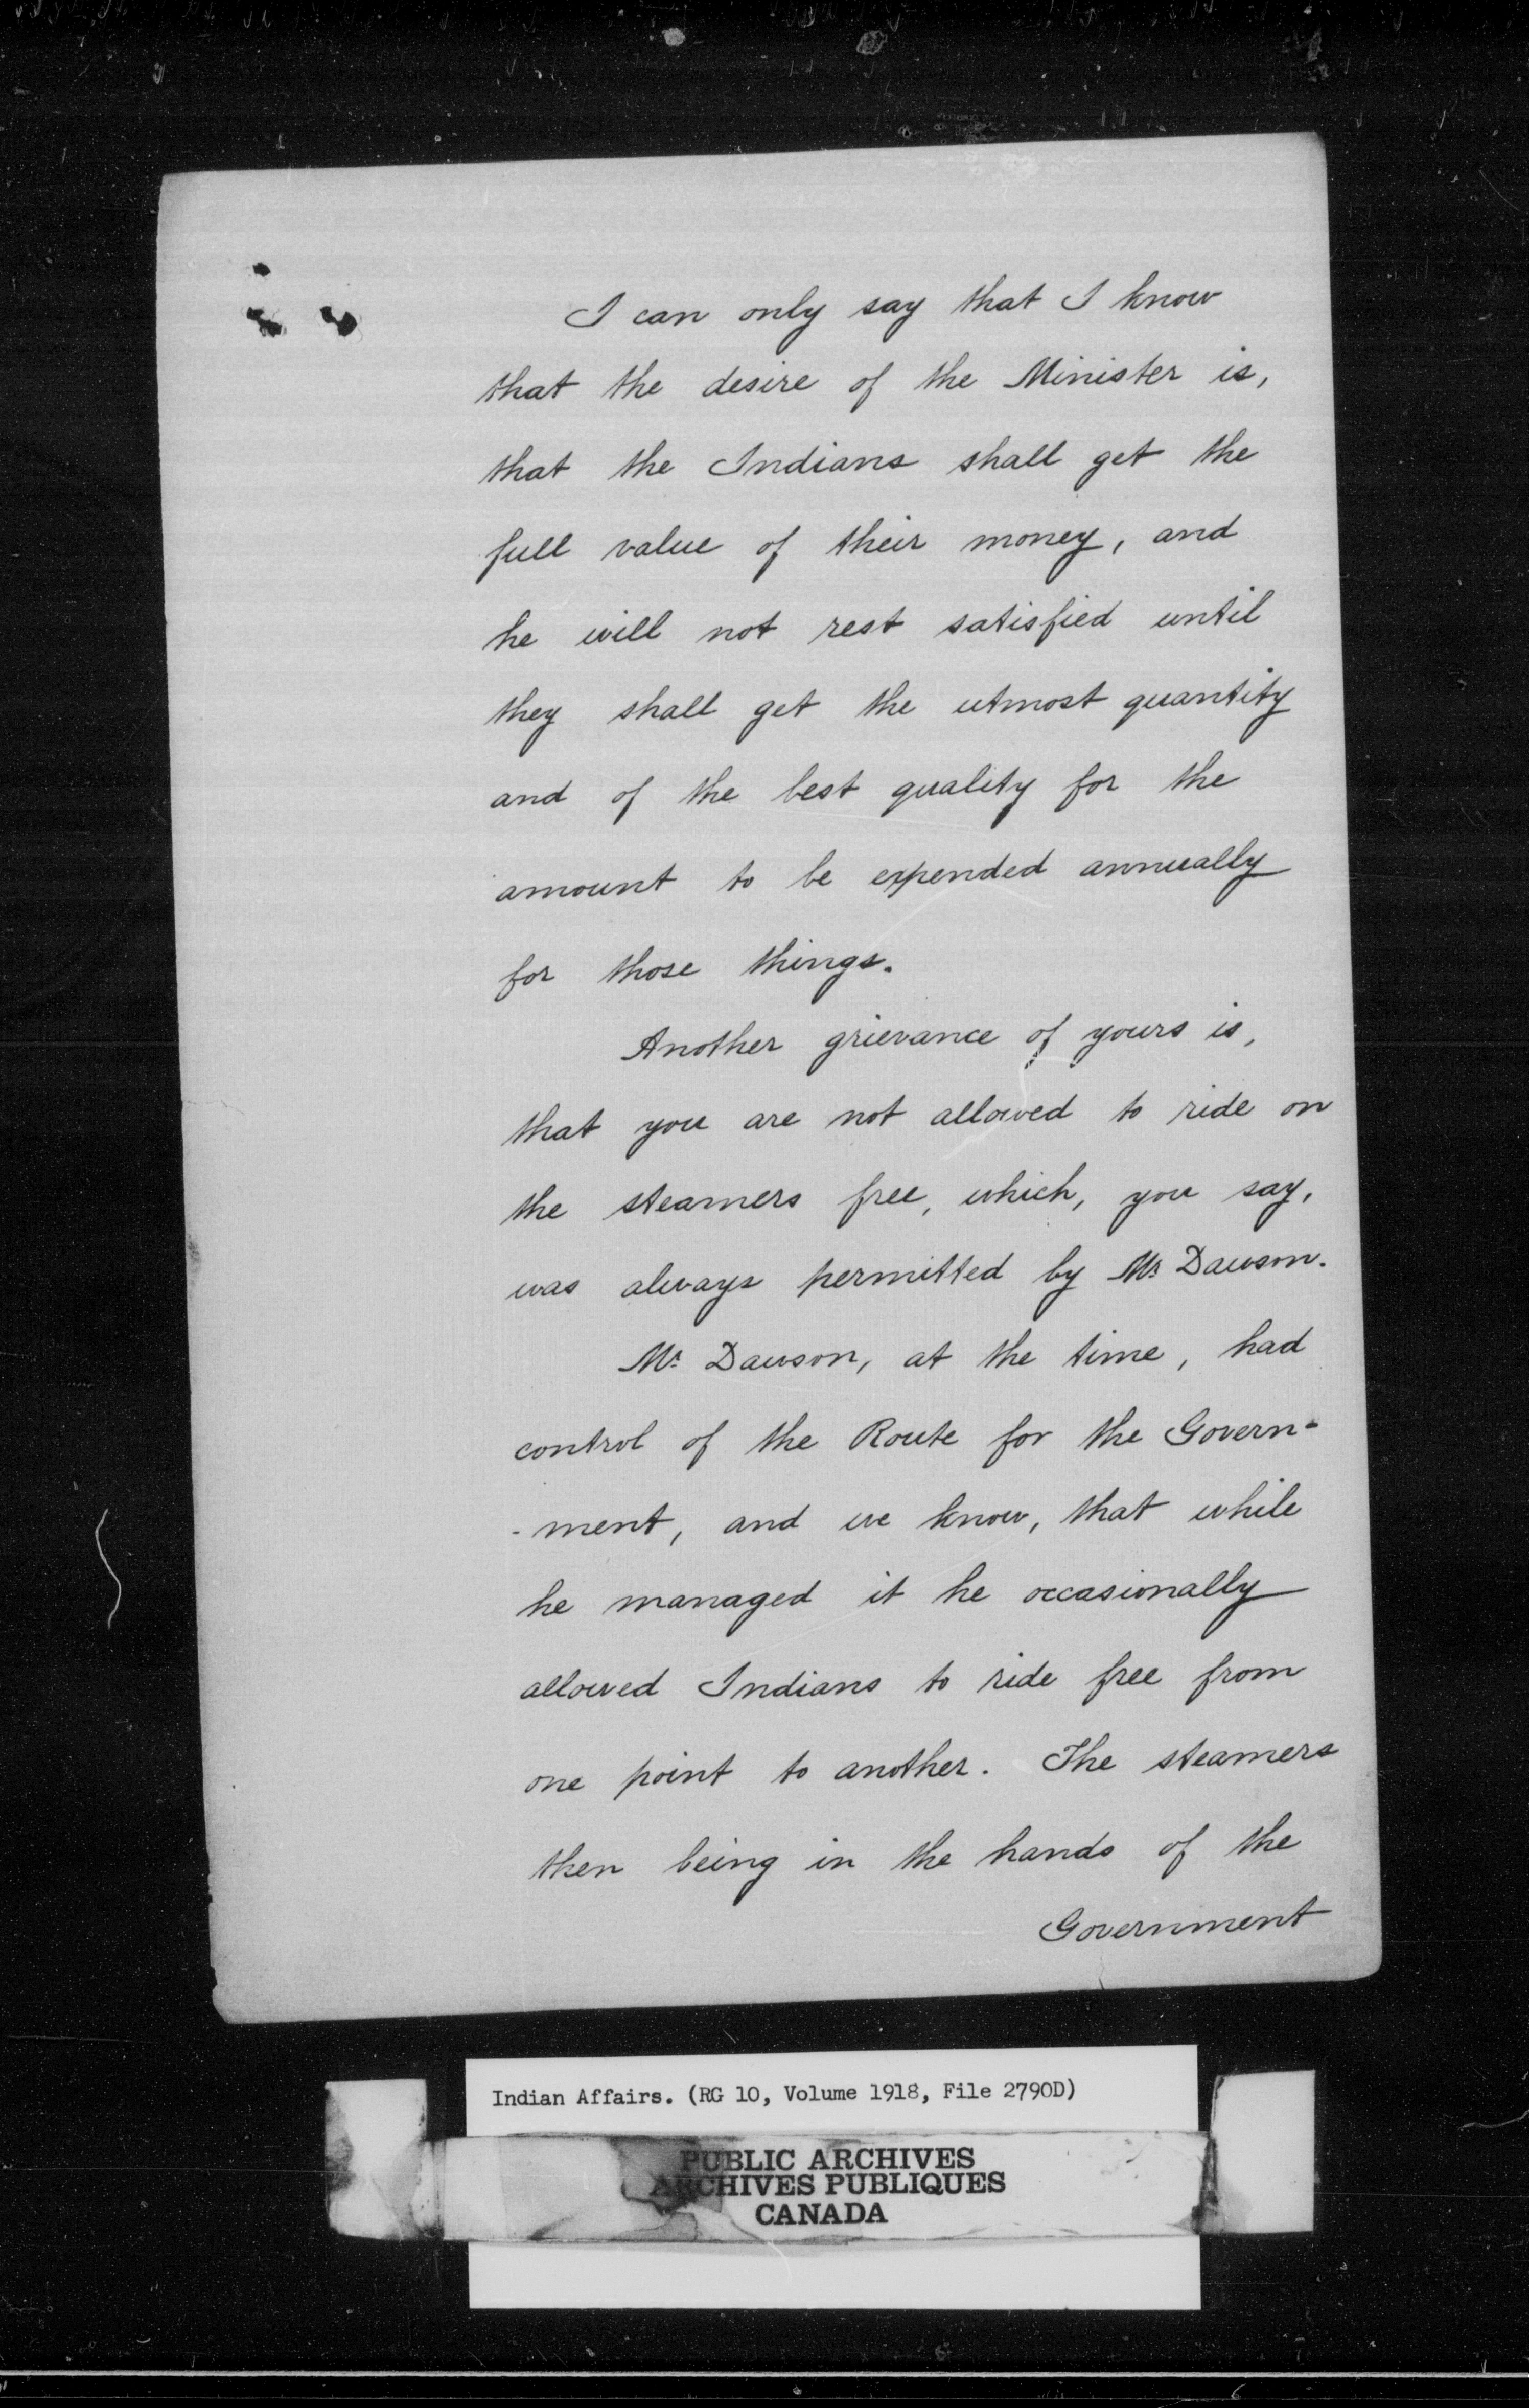 I can only say that I know
that the desire of the Minister is,
that the Indians shall get the
full value of their money, and
he will not rest satisfied until
they shall get the utmost quantity
and of the best quality for the
amount to be expended annually
for those things.
Another grievance of yours is,
that you are not allowed to ride on
the steamers free, which, you say,
was always permitted by Mr Dawson.
Mr. Dawson, at the time, had
control of the Route for the Govern-
-ment, and we know, that while
he managed it he occasionally
allowed Indians to ride free from
one point to another. The steamers
then being in the hands of the
Government
Indian Affairs. (RG 10, Volume 1918, File 2790D)
PUBLIC ARCHIVES
ARCHIVES PUBLIQUES
CANADA